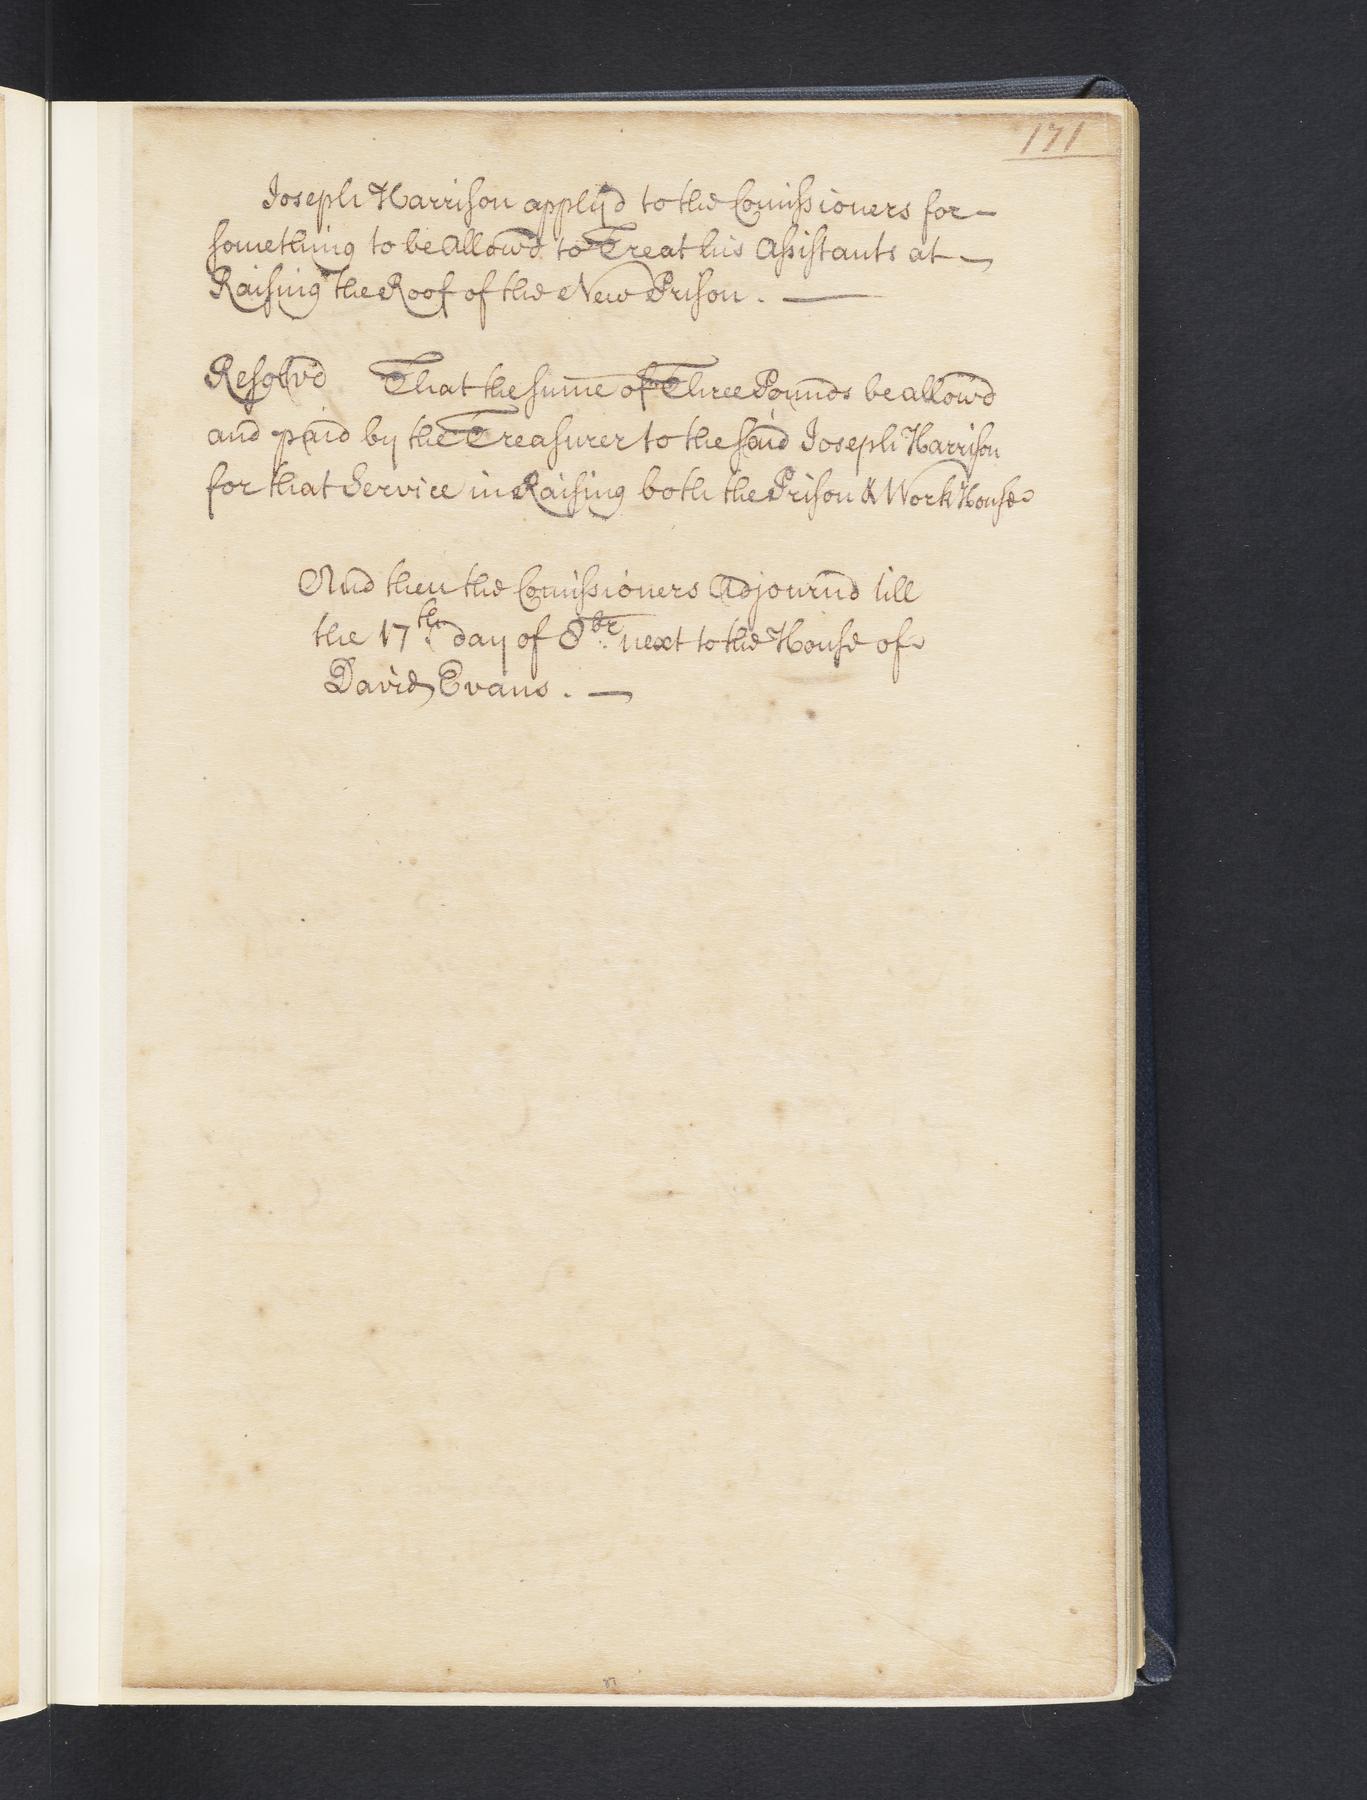 171
Joseph Harrison apply'd to the Comissioners for —
something to be Allow'd to Treat his Assistants at —
Raising the Roof of the New Prison . —
Resolv'd That the sume of Three Pounds be allow'd
and paid by the Treasurer to the said Joseph Harrison
for that Service in Raising both the Prison & Work House
And then the Comissioners Adjourn'd till
the 17th. day of 8br. next to the House of
David Evans . —